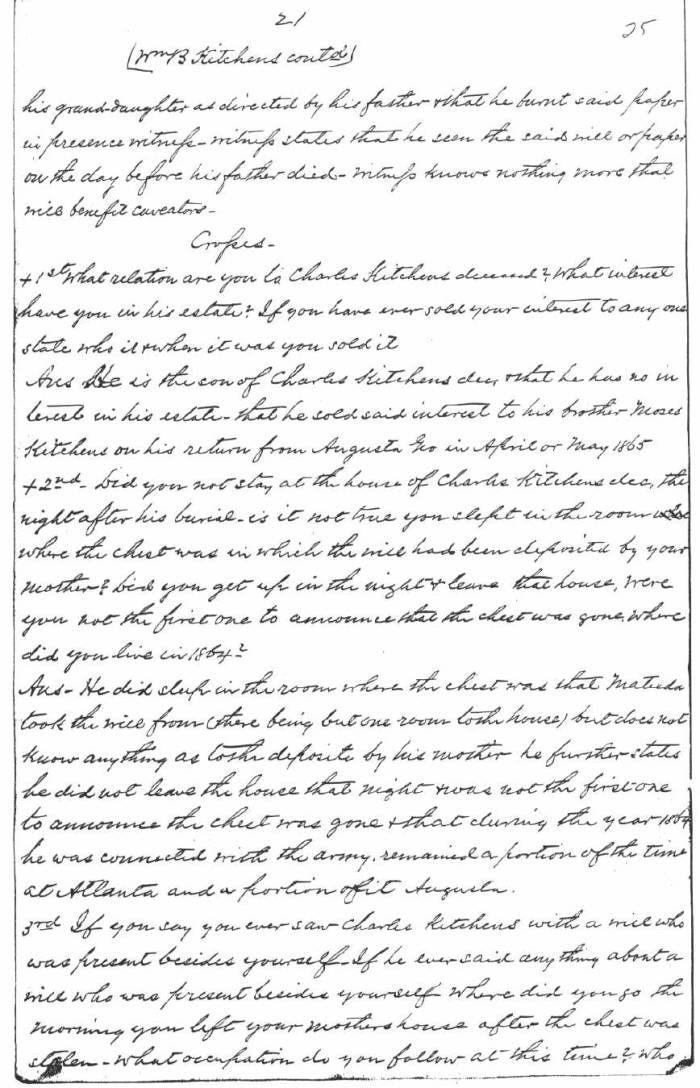 21
25
(Wm B Kitchens contd)
his grand-daughter as directed by his father & that he burnt said paper
in presence witness - witness states that he seen the said will or paper
on the day before his father died - witness knows nothing more that
will benefit caveators -
Crosses -
+ 1st What relation are you to Charles Kitchens deceased? What interest
have you in his estate? If you have ever sold your interest to any one
state who it & when it was you sold it
Ans He is the son of Charles Kitchens dec, & that he has no in
terest in his estate - that he sold said interest to his brother Moses
Kitchens on his return from Augusta Geo in April or May 1865
+ 2nd - Did you not stay at the house of Charles Kitchens dec, the
night after his burial - is it not true you slept in the room
where the chest was in which the will had been deposited by your
mother? Did you get up in the night & leave that house, were
you not the first one to announce that the chest was gone, where
did you live in 1864?
Ans - He did sleep in the room where the chest was that Matilda
took the will from (there being but one room to the house) but does not
know anything as to the deposite by his mother he further states
he did not leave the house that night & was not the first one
to announce the chest was gone & that during the year 1864
he was connected with the army. remained a portion of the time
at Atlanta and a portion of it Augusta.
3rd If you say you ever saw Charles Kitchens with a will who
was present besides yourself - If he ever said any thing about a
will who was present besides yourself where did you go the
morning you left your mothers house after the chest was
stolen - what occupation do you follow at this time? who